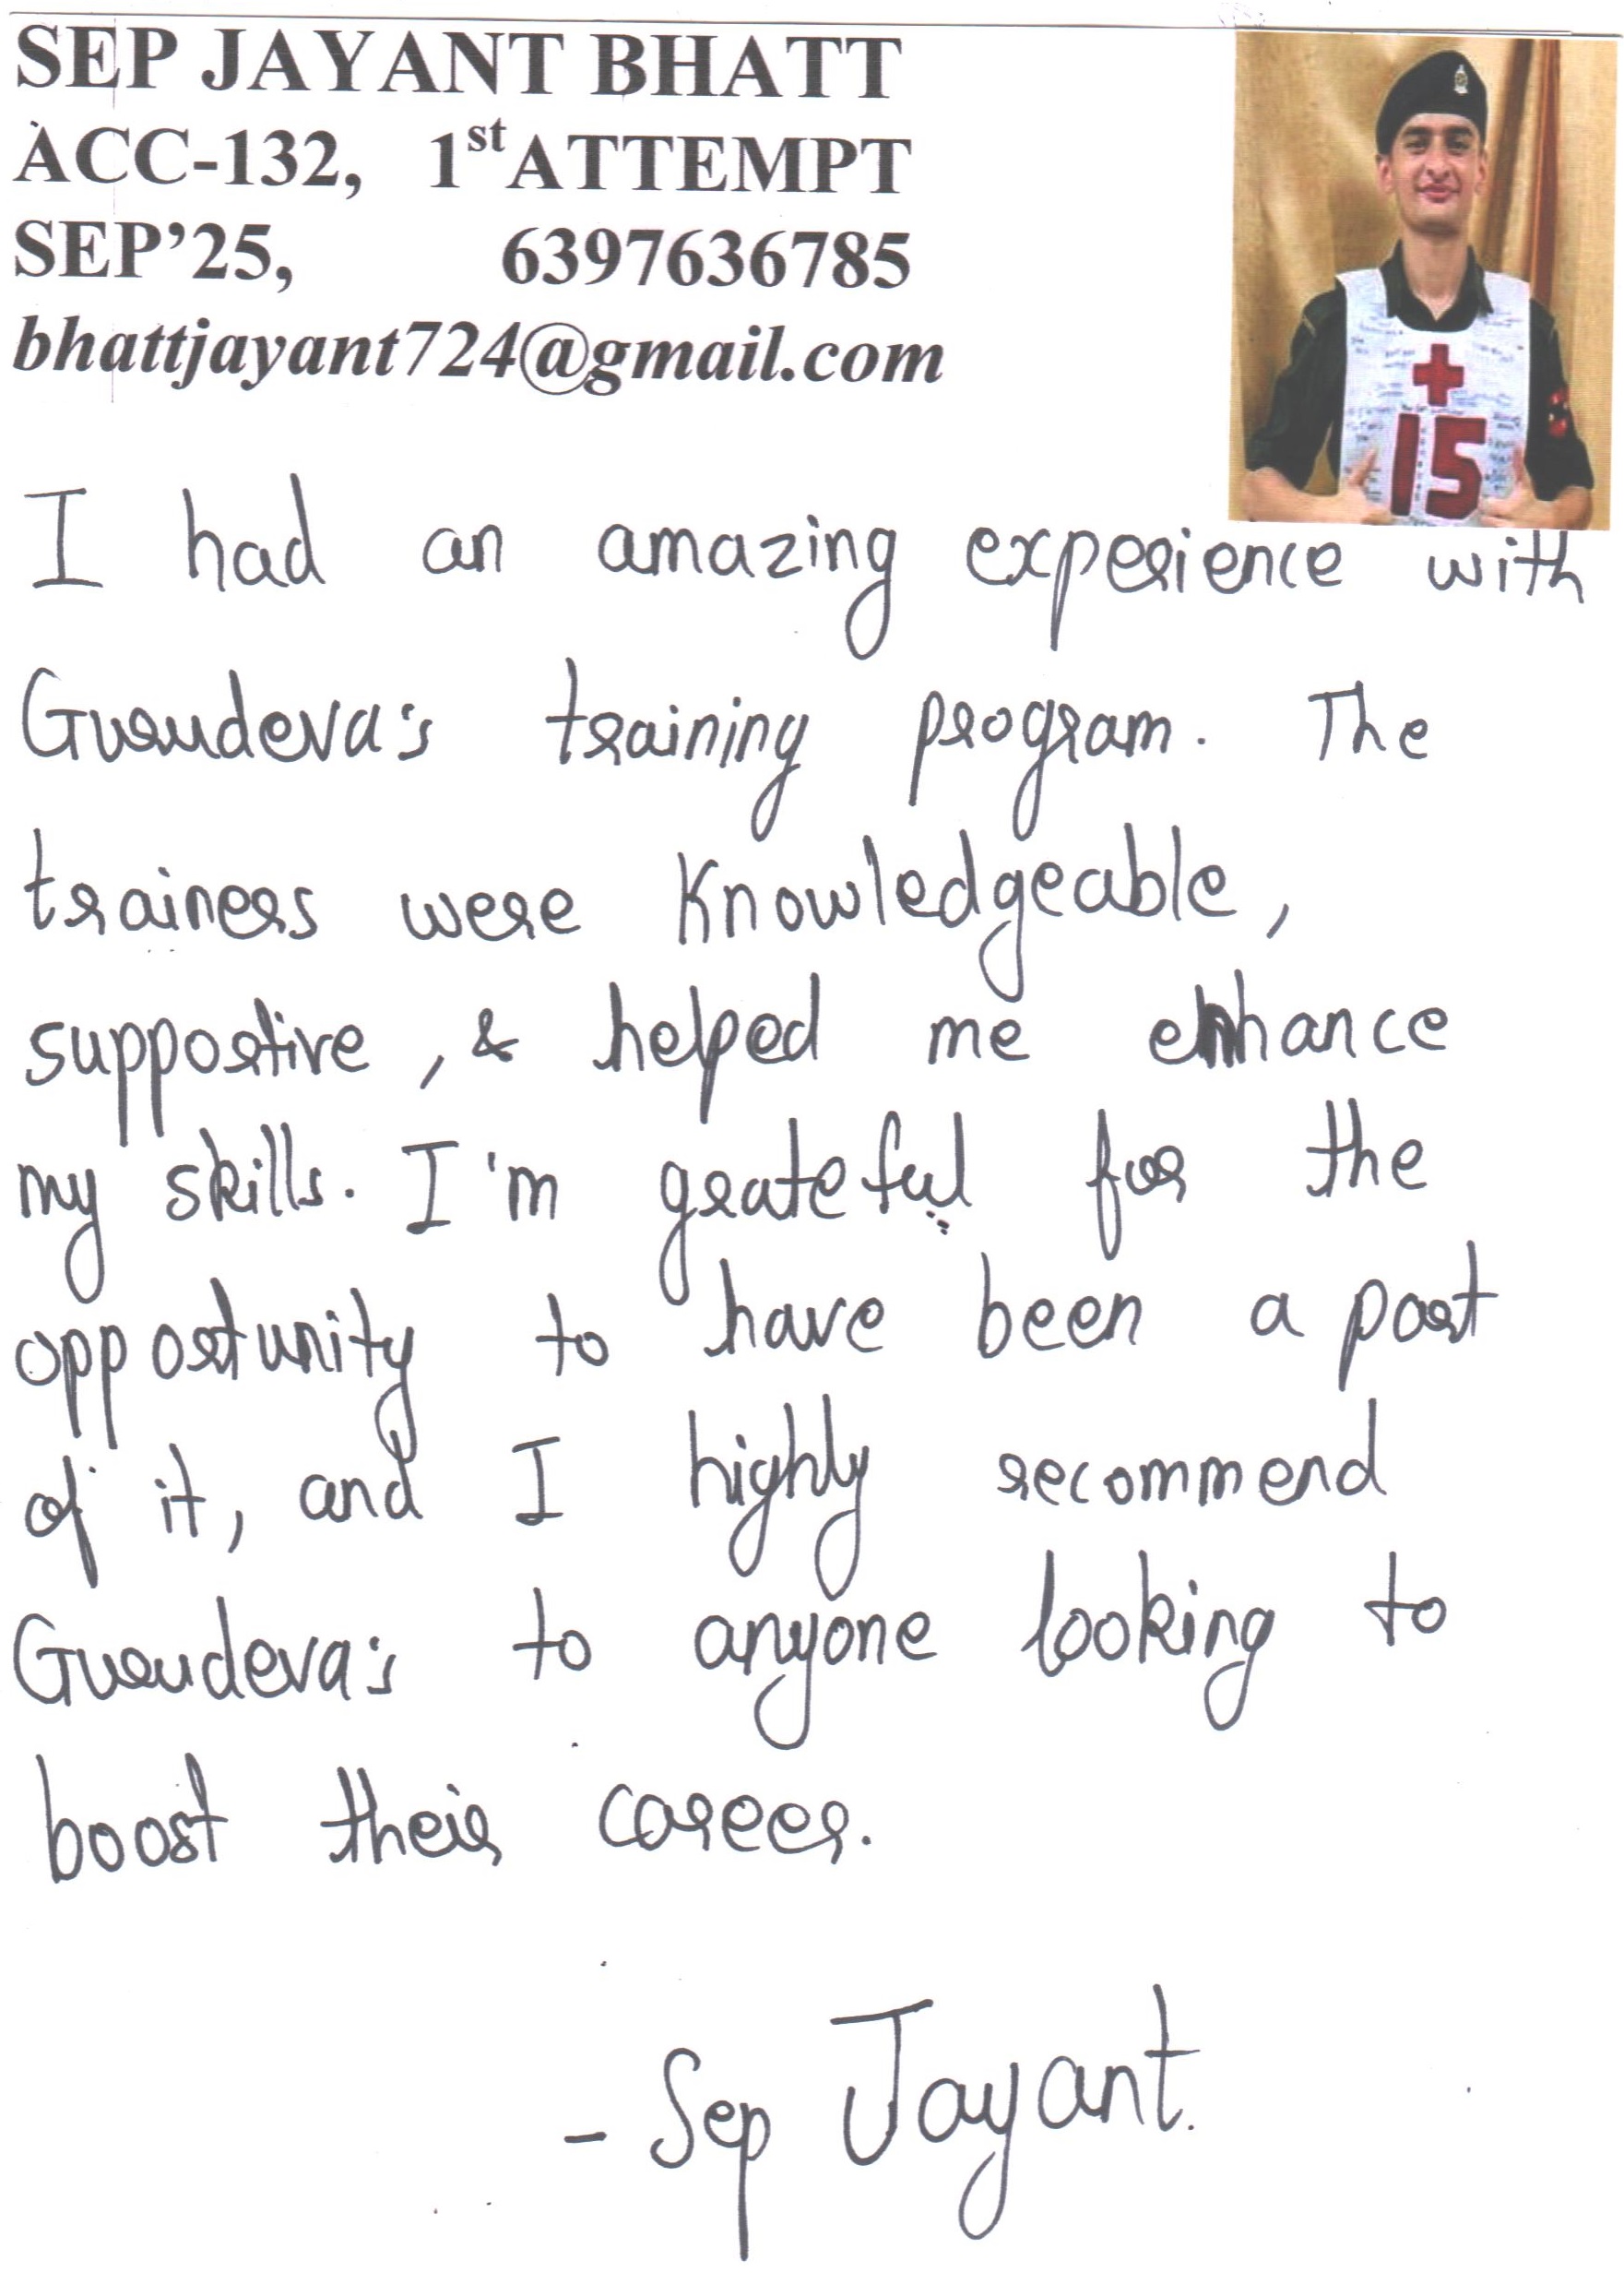 SEP JAYANT BHATT
ACC-132, 1st ATTEMPT
SEP'25, 6397636785
bhattjayant724@gmail.com
15
I had an amazing experience with
Gurudeva's training program. The
trainers were Knowledgeable,
supportive, & helped me enhance
my skills. I'm grateful for the
opportunity to have been a part
of it, and I highly recommend
Gurudeva's to anyone looking to
boost their career.
- Sep Jayant.